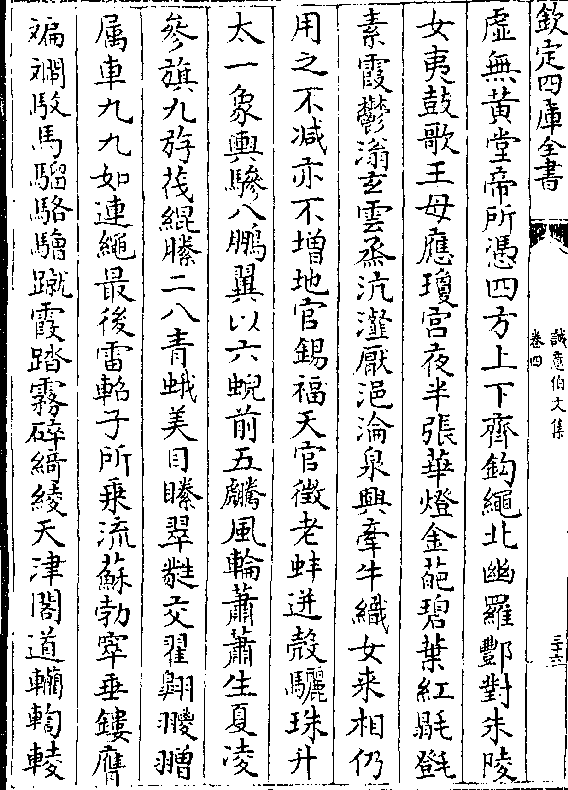 欽定四庫全書
誠意伯文集
卷四
三十六
虛無黃堂帝所憑四方上下齊鈎繩北幽羅酆對朱陵
女夷鼓歌王母應瓊宫夜半張華燈金葩碧葉紅毾㲪
素霞鬱滃玄雲烝沆瀣厭浥淪泉興牽牛織女来相仍
用之不减亦不增地官錫福天官徵老蚌迸殻驪珠升
太一象輿驂八鵬翼以六蜺前五麟風輪蕭蕭生夏凌
參旗九斿茷緄縢二八青蛾美目瞭翠蕤交翟翾翪翷
属車九九如連繩最後雷軺子所乗流蘇勃窣垂鏤膺
斒斕駮馬騮駱驓蹴霞踏霧碎縎綾天津閣道轥轕輘